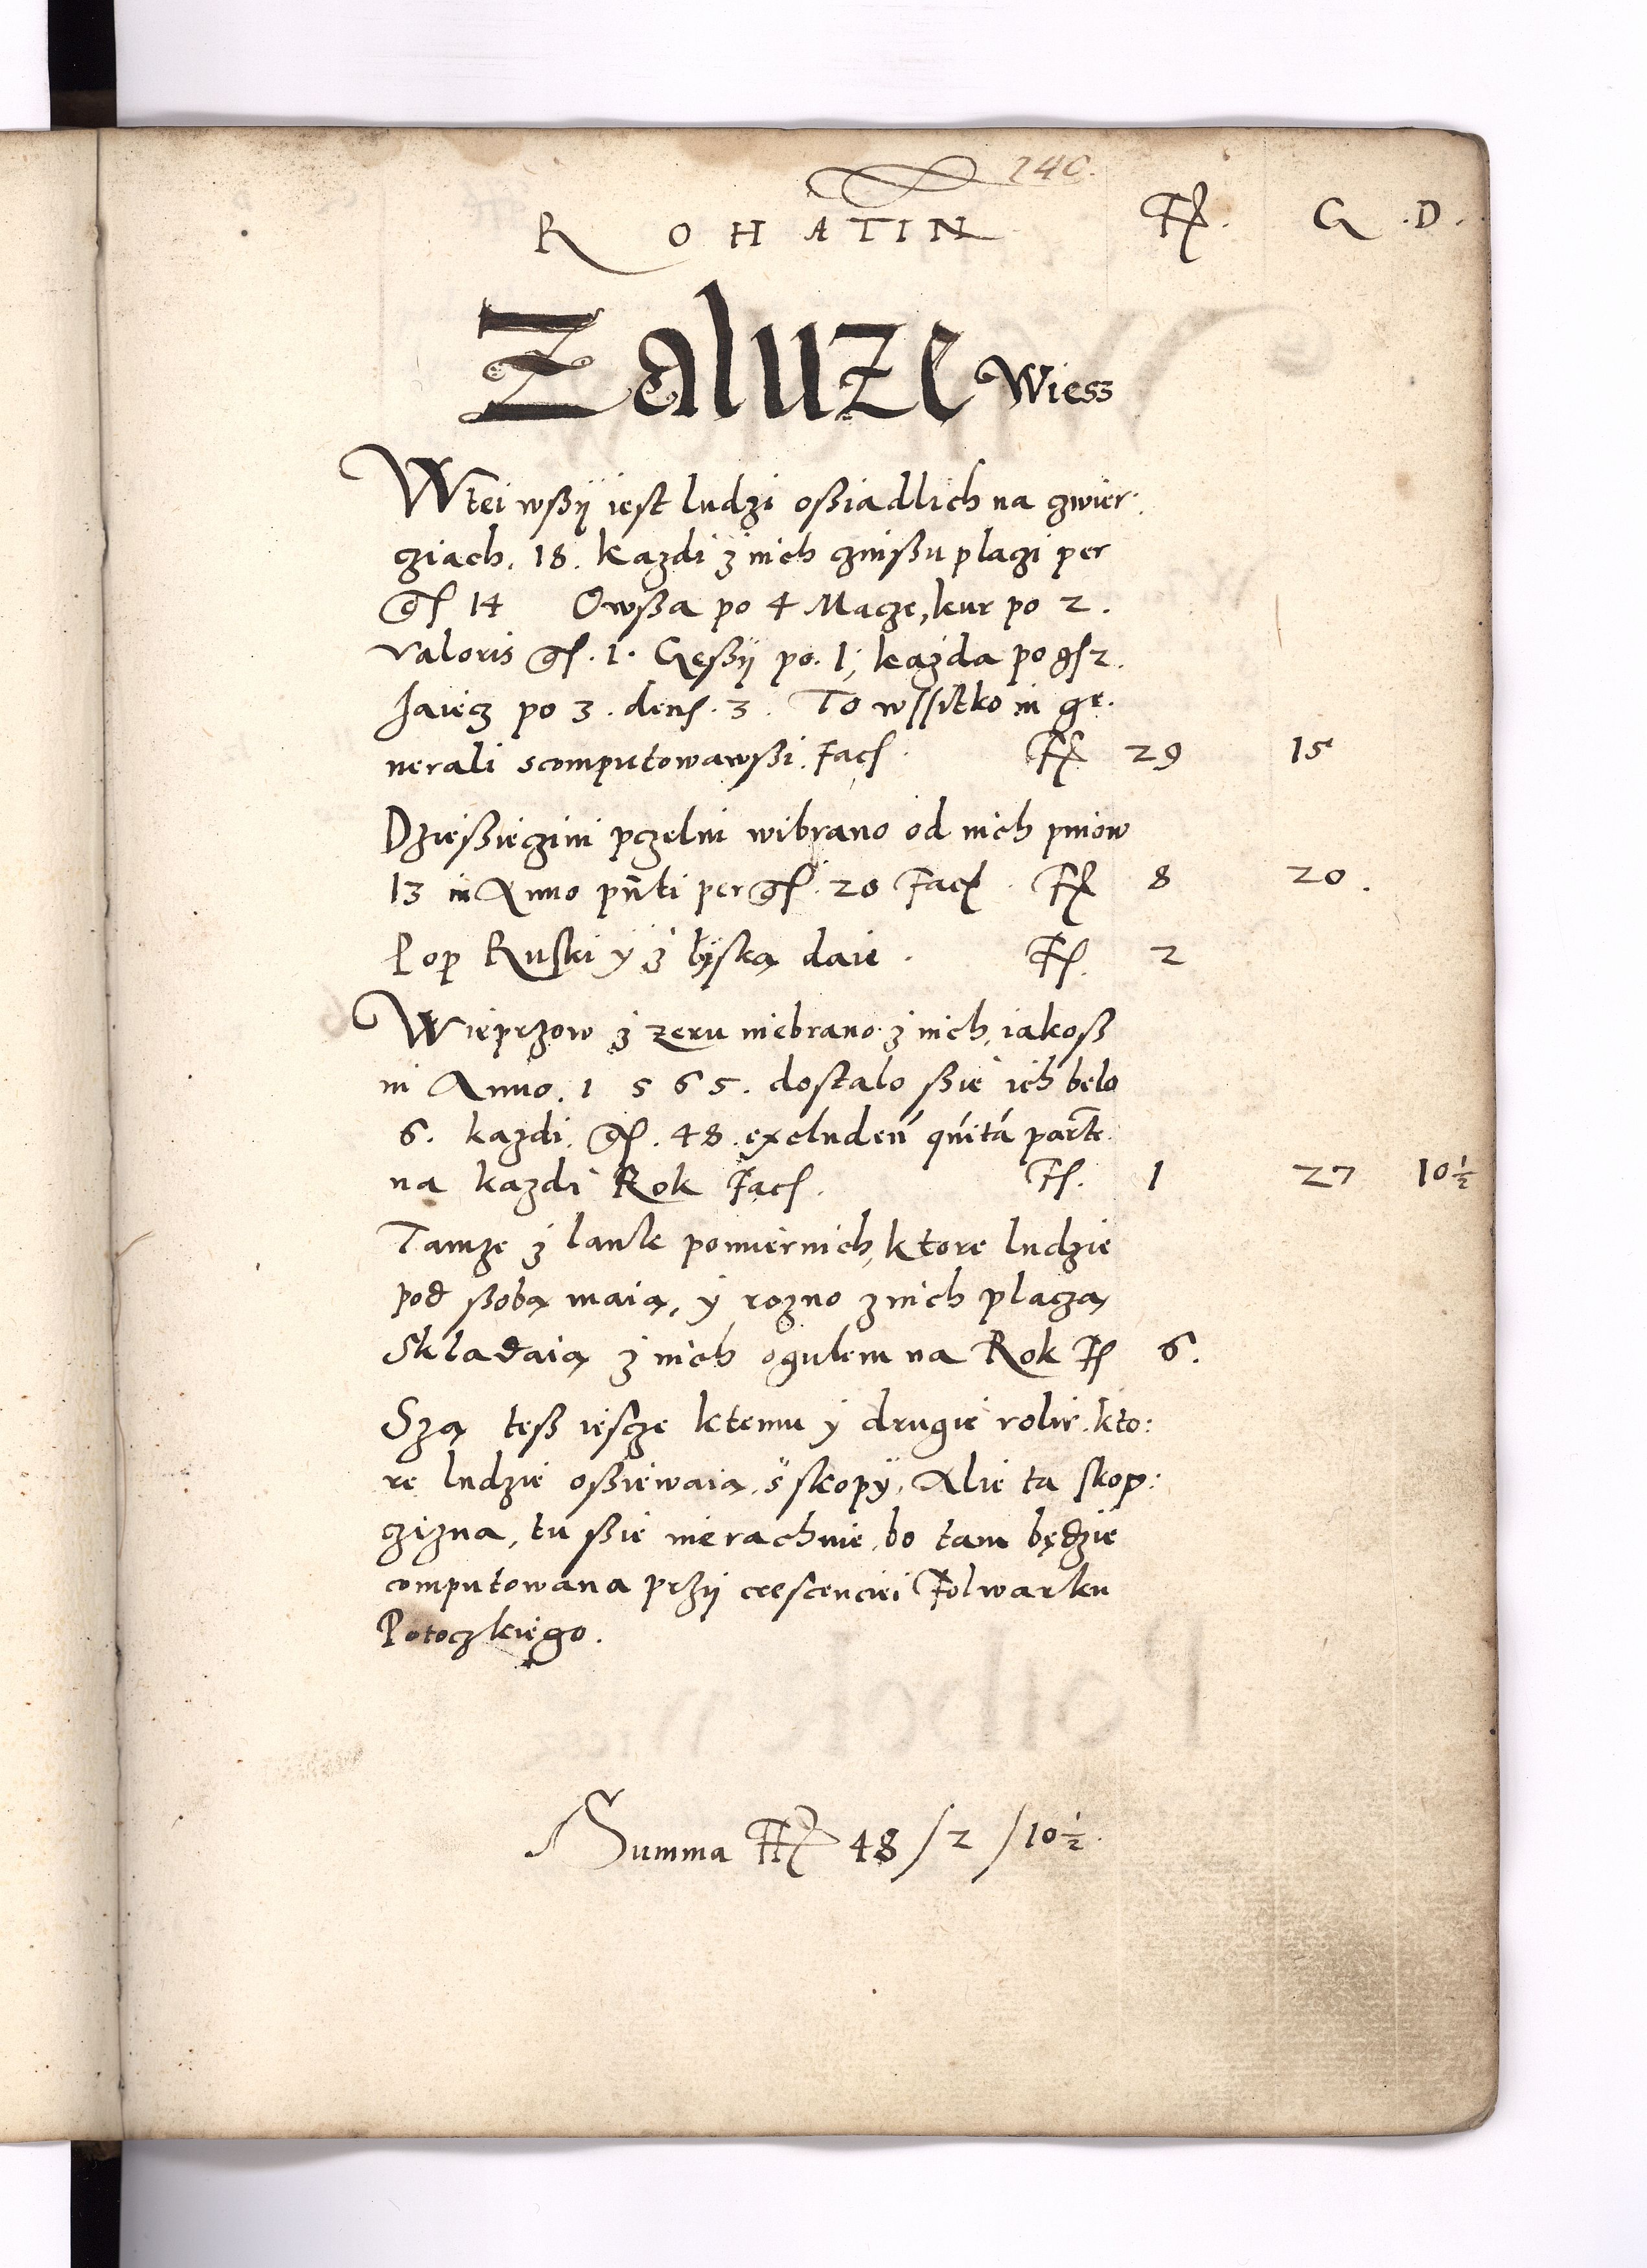 240.
ROHATIN Fl. G .D.
Zaluze Wiess
W tei wßÿ iest ludzi oßiadlich na czwier:
cziach. 18. kazdi z nich czinßu placzi per
gſ 14 Owßa po 4 Macze, kur po 2.
valoris gſ. 1. Gęßÿ po. 1, kazda po gſ 2.
Jaiecz po 3. denſ. 3. To wſſitko in ge.
nerali scomputowawßi. Facſ. Fl 29 15
Dzießięczini pczelni wibrano od nich pniow
13 in Anno pñti per gſ. 20 Facſ. Fl 8 20.
Pop Ruski ÿ z lÿską daie. Fl. 2
Wieprzow z zeru niebrano z nich, iakoß
in Anno. 1565. dostalo ßie ich belo
6. kazdi. gſ. 48. excluden̄ qńtá parte.
na kazdi Rok Facſ. Fl. 1 27 10½
Tamze z lank pomiernich, ktore ludzie
pod ßobą maią, ÿ rozno z nich placzą
Składaią z nich ogulem na Rok Fl 6.
Szą teß iescze ktemu ÿ drugie rolie. kto:
re ludzie oßiewaią, s skopÿ, Alie ta skop:
czizna, tu ßie nie rachuie, bo tam będzie
computowana przÿ crescenciei Folwarku
Potoczkiego.
Summa Fl 48 / 2 / 10½.